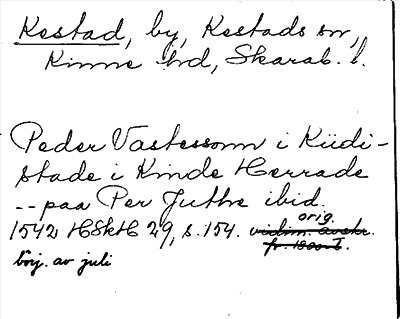 Kestad, by, Kestads sn,
Kinne hd, Skarab. l.
Peder Vastessonn i Kiidi-
stade i Kinde Herrade
-- paa Per Juthe ibid.
1542 HSkH 29, s. 154. orig. vidim. avskr.
fr. 1800-t.
börj. av juli